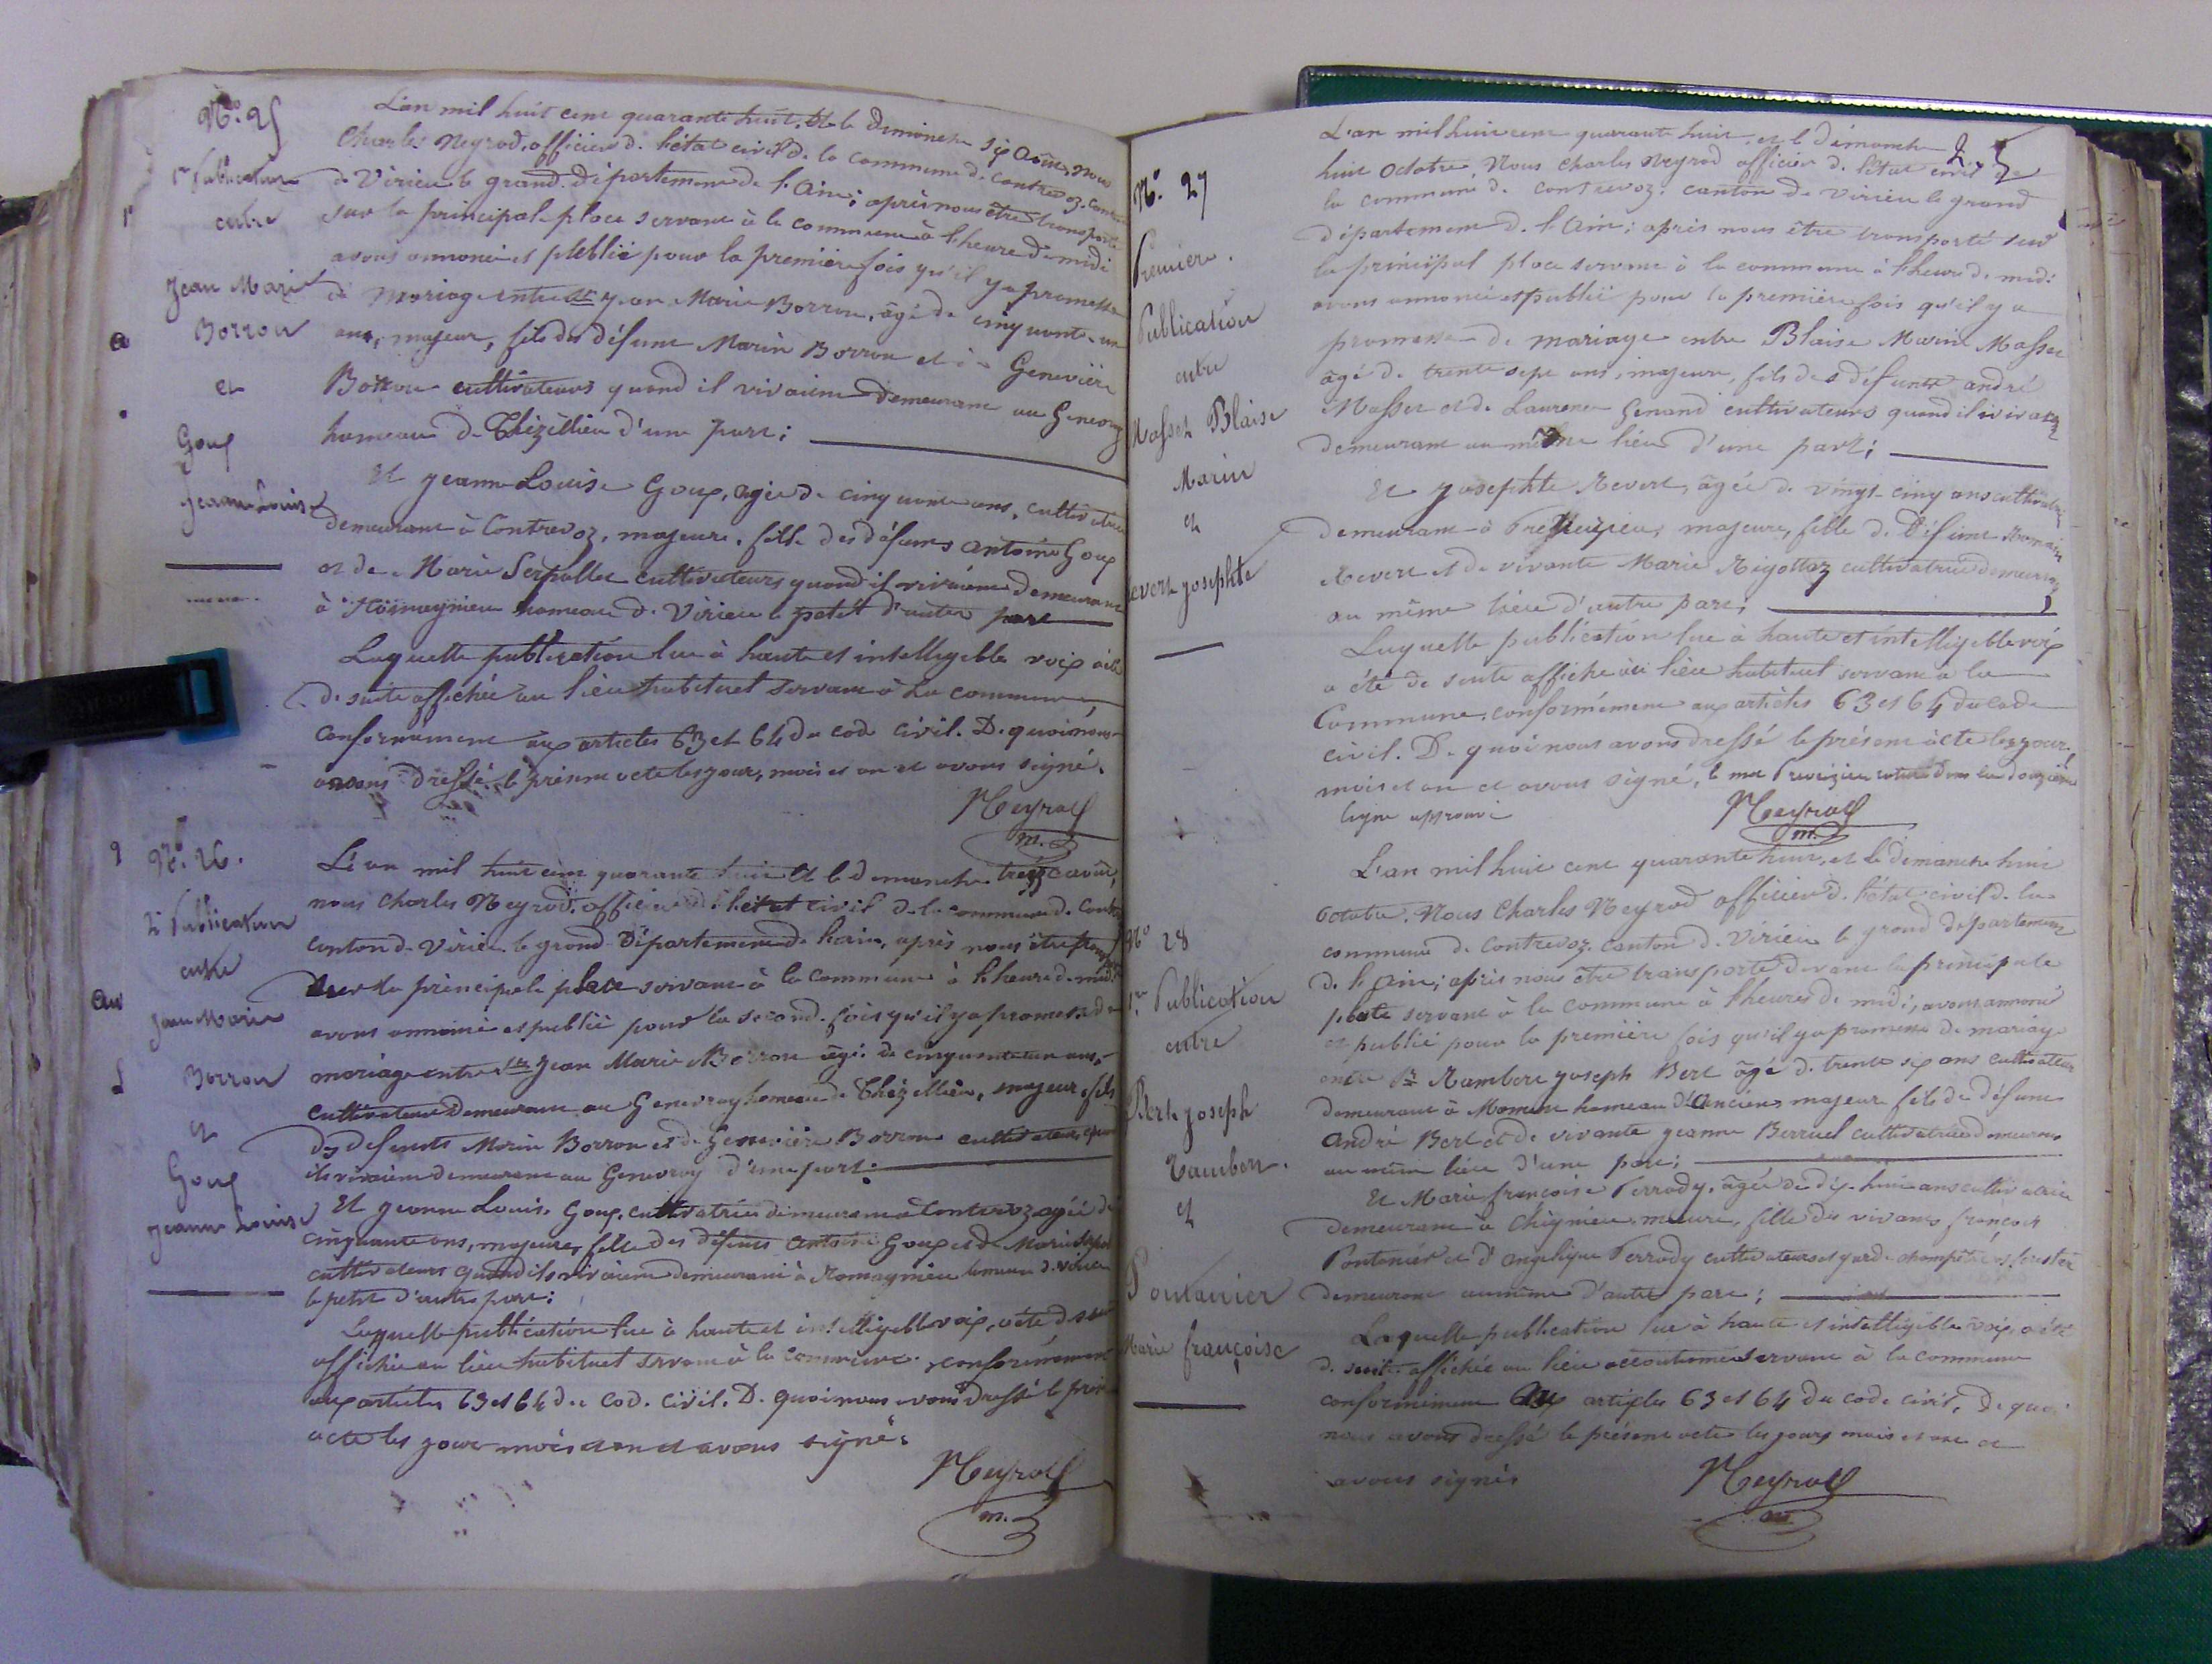 N.o 25
1re Publication
entre
Jean Marie
Borron
et
Goux
Jeanne Louise
L'an mil huit cent quarante huit, et le Dimanche six Août, nous
Charles Neyrod, officier de l'état civil de la commune de Contrevoz, canton
de Virieu le grand, département de l'Ain; après nous être transporté
sur la principale place servant à la commune à l'heure de midi
avons annoncé et publié pour la première fois qu'il y a promesse
de mariage entre sr Jean Marie Borron, âgé de cinquante-un
ans, majeur, fils des défunt Marin Borron et de Genevière
Borron cultivateurs quand il vivaient demeurant au Genevray
hameau de Thézillieu d'une part;
Et Jeanne Louise Goux, agée de cinquante ans, cultivatrice
demeurant à Contrevoz, majeure, fille des défunts antoine Goux
et de Marie Serpollet cultivateurs quand il vivaient demeurant
à Romagnieu hameau de Virieu le petit d'autre part
Laquelle publication lue à haute et intelligible voix a été
de suite affichée au lieu habituel servant à la commune,
conformément aux articles 63 et 64 du code civil. De quoi nous
avons dressé le présent acte les jour, mois et an et avons signé.
Neyrod
m.
N.o 26.
2e Publication
entre
Jean Marie
Borron
et
Goux
Jeanne Louise
L'an mil huit cent quarante huit et le dimanche treize août,
nous Charles Neyrod, officier de l'état civil de la commune de
canton de Virieu le grand Département de l'ain, après nous être
sur la principale place servant à la commune à l'heure de midi
avons annoncé et publié pour la seconde fois qu'il y a promesse de
mariage entre sr Jean Marie Borron âgé de cinquante un ans,
cultivateur demeurant au Genevray hameau de Thézillieu, majeur, fils
des defunts Marin Borron et de Genevière Borron cultivateurs quand
ils vivaient demeurant au Genevray d'une part;
Et Jeanne Louise Goux, cultivatrice demeurant à Contrevoz agée de
cinquante ans, majeure, fille des défunts Antoine Goux et de Marie
cultivateurs quand ils vivaient demeurant à Romagnieu hameau de Virieu
le petit d'autre part;
Laquelle publication lue à haute et intelligible voix, a été de suite
affichée au lieu habituel servant à la commune, conformément
aux articles 63 et 64 du code civil. De quoi nous avons dressé le présent
acte les jour mois et an et avons signé.
Neyrod
m.
25
N.o 27
Première
Publication
entre
Masset Blaise
Marin
et
Revert josephte
L'an mil huit cent quarante huit, et le dimanche
huit Octobre, Nous Charles Neyrod officier de l'état civil de
la commune de Contrevoz, canton de Virieu le grand
département de l'Ain; après nous être transporté sur
la principal place servant à la commune à l'heure de midi
avons annoncé et publié pour la première fois qu'il y a
promesse de mariage entre Blaise Marin Masset
âgé de trente sept ans, majeur, fils des défunts andré
Masset et de Laurence Genand cultivateurs quand il vivaient
demeurant au même lieu d'une part;
Et Josephte Revert, âgée de vingt-cinq ans cultivatrice
demeurant à majeure, fille de défunt
Revert et de vivante Marie Rigottaz cultivatrice demeurant
au même lieu d'autre part;
Laquelle publication lue à haute et intelligible voix
a été de suite affiche au lieu habituel servant à la
Commune, conformément aux articles 63 et 64 du code
civil. De quoi nous avons dressé le présent acte les jour,
mois et an et avons signé, le mot dans la douzième
ligne approuvé
Neyrod
m.
N.o 28
1re Publication
entre
Bert joseph
Rambert.
et
Pontanier
Marie françoise
L'an mil huit cent quarante huit, et le dimanche huit
Octobre, Nous Charles Neyrod officier de l'état civil de la
commune de Contrevoz, canton de Virieu le grand département
de l'Ain; après nous être transporté devant la principale
place servant à la commune à l'heure de midi, avons annoncé
et publié pour la première fois qu'il y a promesse de mariage
entre Sr Rambert joseph Bert âgé de trente six ans cultivateur
demeurant à hameau d'Ancien, majeur fils de défunt
André Bert et de vivante jeanne Berruel cultivatrice demeurant
au même lieu d'une part;
Et Marie françoise Perrody, âgée de dix-huit ans cultivatrice
demeurant à Chignieu, mineure, fille des vivants françois
Pontanier et d'angelique Perrody cultivateurs et garde champêtre et forestier
demeurant au même d'autre part;
Laquelle publication lue à haute et intelligible voix, a été
de suite affichée au lieu accoutumé servant à la commune
conformément aux articles 63 et 64 du code civil, De quoi
nous avons dressé le présent acte les jours mois et an et
avons signés
Neyrod
m.